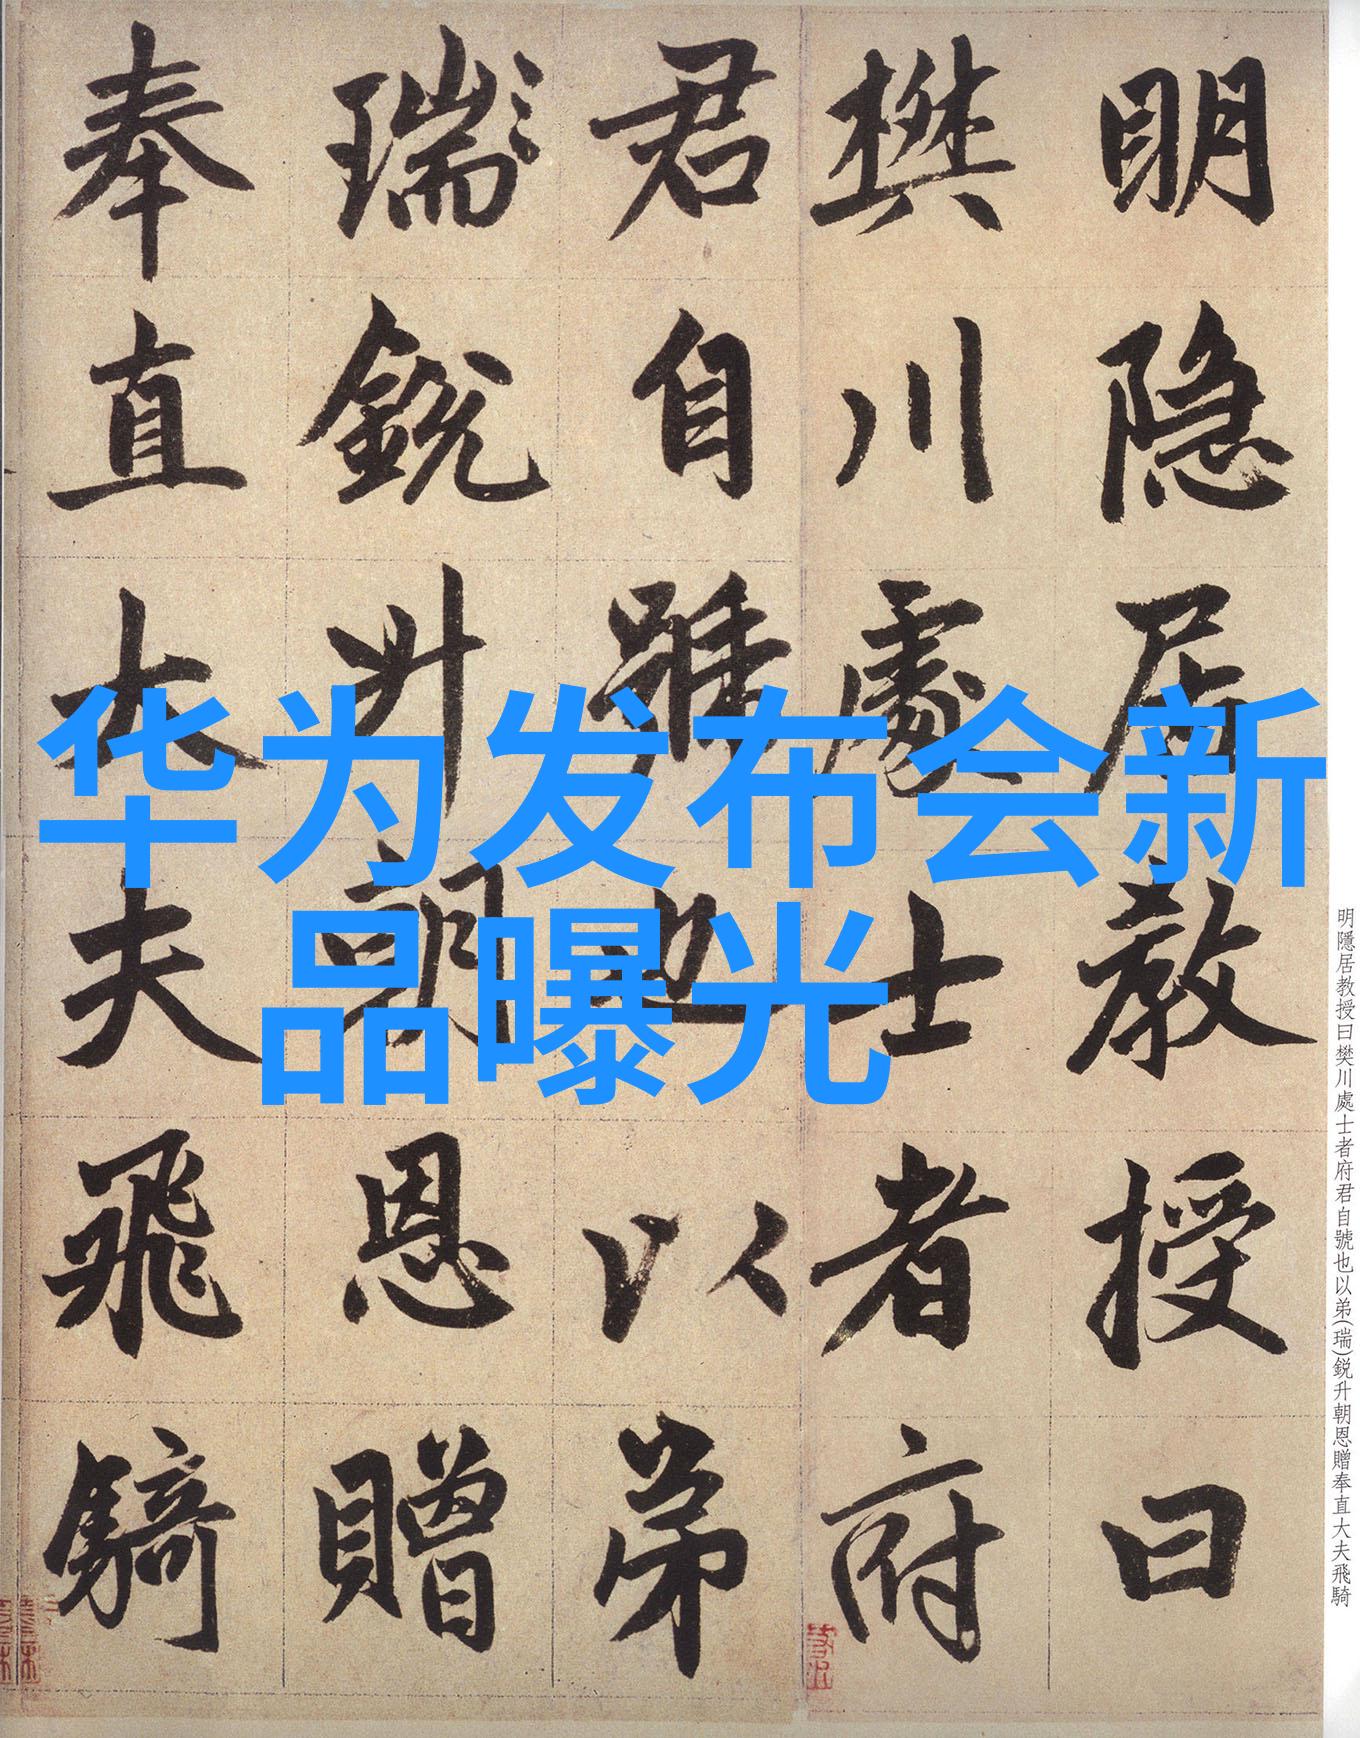 明隐居教授曰
樊川處士者府
君自號也以弟
瑞銳升朝恩贈
奉直大夫飛騎
华为发布会新
品曝光
明隱居教授曰樊川處士者府君自號也以弟(瑞)銳升朝恩贈奉直大夫飛騎